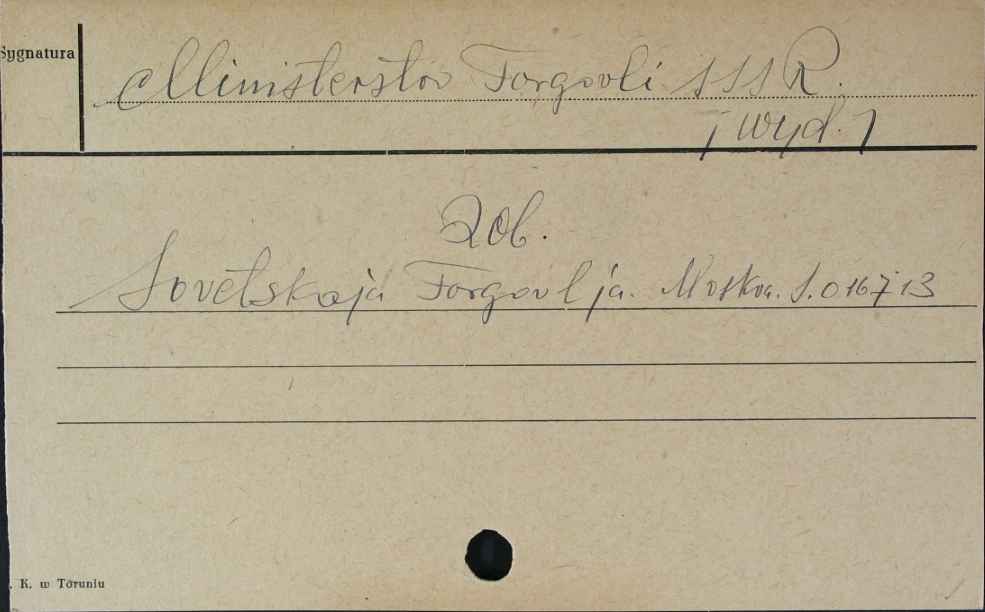 Sygnatura
Ministerstov Torgovli SSSR.
/wyd./
Zob.
Sovetskaja Torgovlja. Moskva. S.01673
. K. w Toruniu